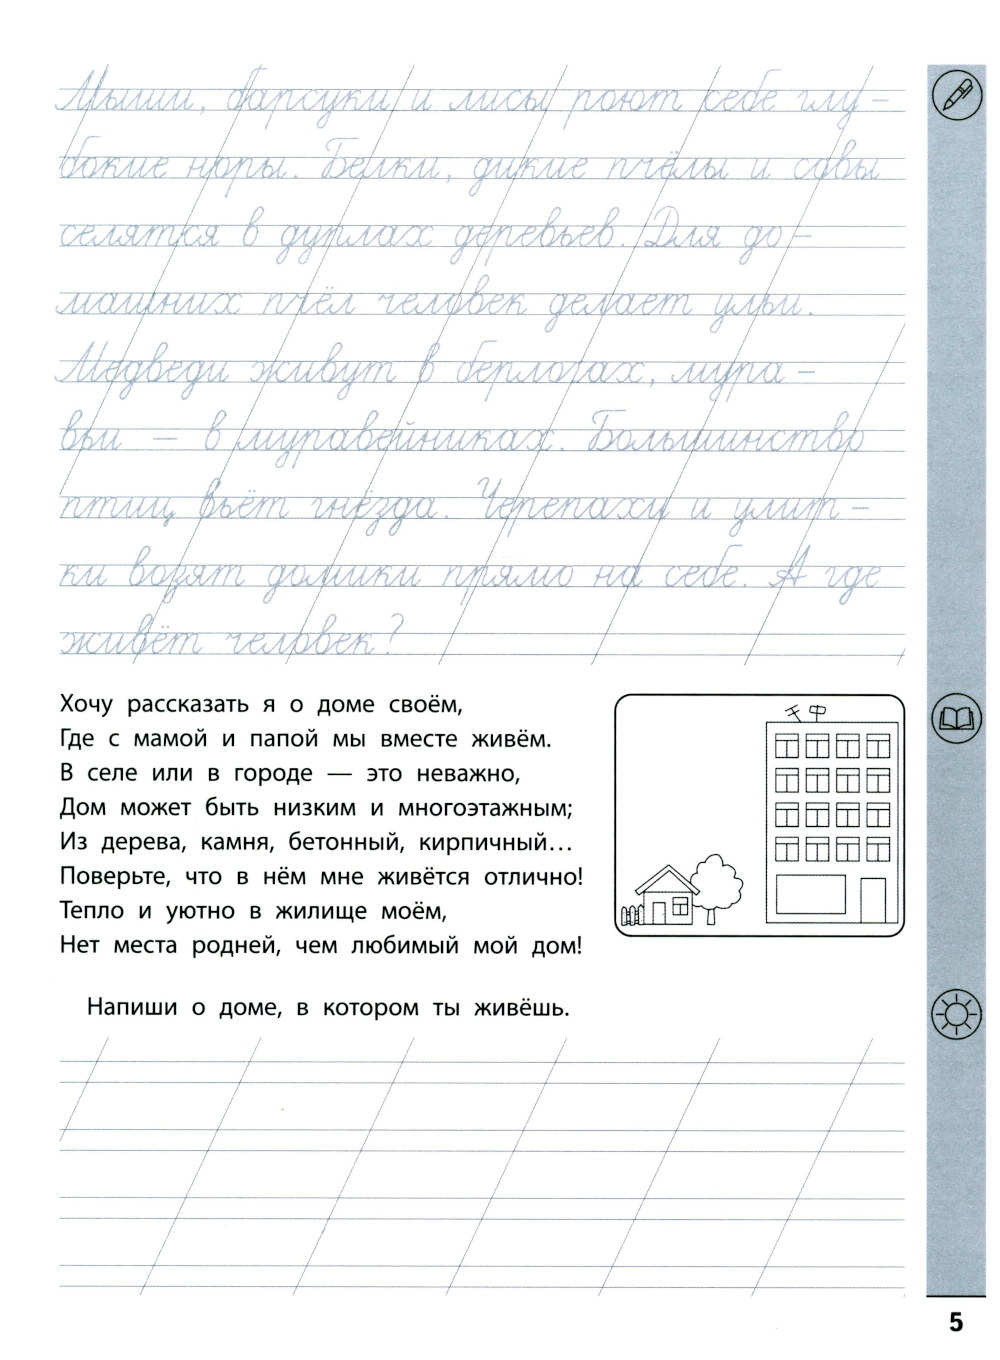 Мыши, барсуки и лисы роют себе глу-
бокие норы. Белки, дикие пчёлы и совы
селятся в дуплах деревьев. Для до-
машних пчёл человек делает ульи.
Медведи живут в берлогах, мура-
вьи — в муравейниках. Большинство
птиц вьёт гнёзда. Черепахи и улит-
ки возят домики прямо на себе. А где
живёт человек?
Хочу рассказать я о доме своём,
Где с мамой и папой мы вместе живём.
В селе или в городе — это неважно,
Дом может быть низким и многоэтажным;
Из дерева, камня, бетонный, кирпичный...
Поверьте, что в нём мне живётся отлично!
Тепло и уютно в жилище моём,
Нет места родней, чем любимый мой дом!
Напиши о доме, в котором ты живёшь.
5